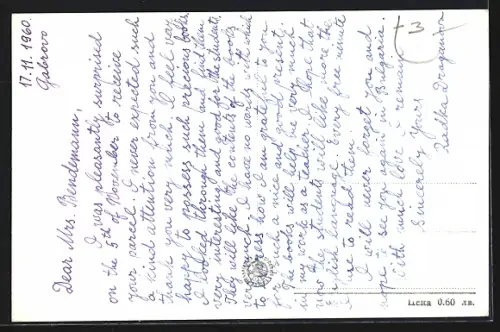 17.11.1960.
Gabrovo
Dear Mrs. Bendemann,
I was pleasantly surprised
on the 5th of November to receive
your parcel. I never expected such
a kind attention from you and
thank you very much. I feel very
happy to possess such precious books.
I looked through them and find them
very interesting and good for the students.
They will like the contents of the books
very much. I have no words with which
to express how I am grateful to you
for such a nice and good present.
The books will help me very much
in my work as a teacher. I hope that
now the students will like more the
English language. Every free minute
I use to read them.
I will never forget you and
hope to see you again in Bulgaria.
With much love I remain
Sincerely Yours
Dragieva
3
Цена 0.60 лв.